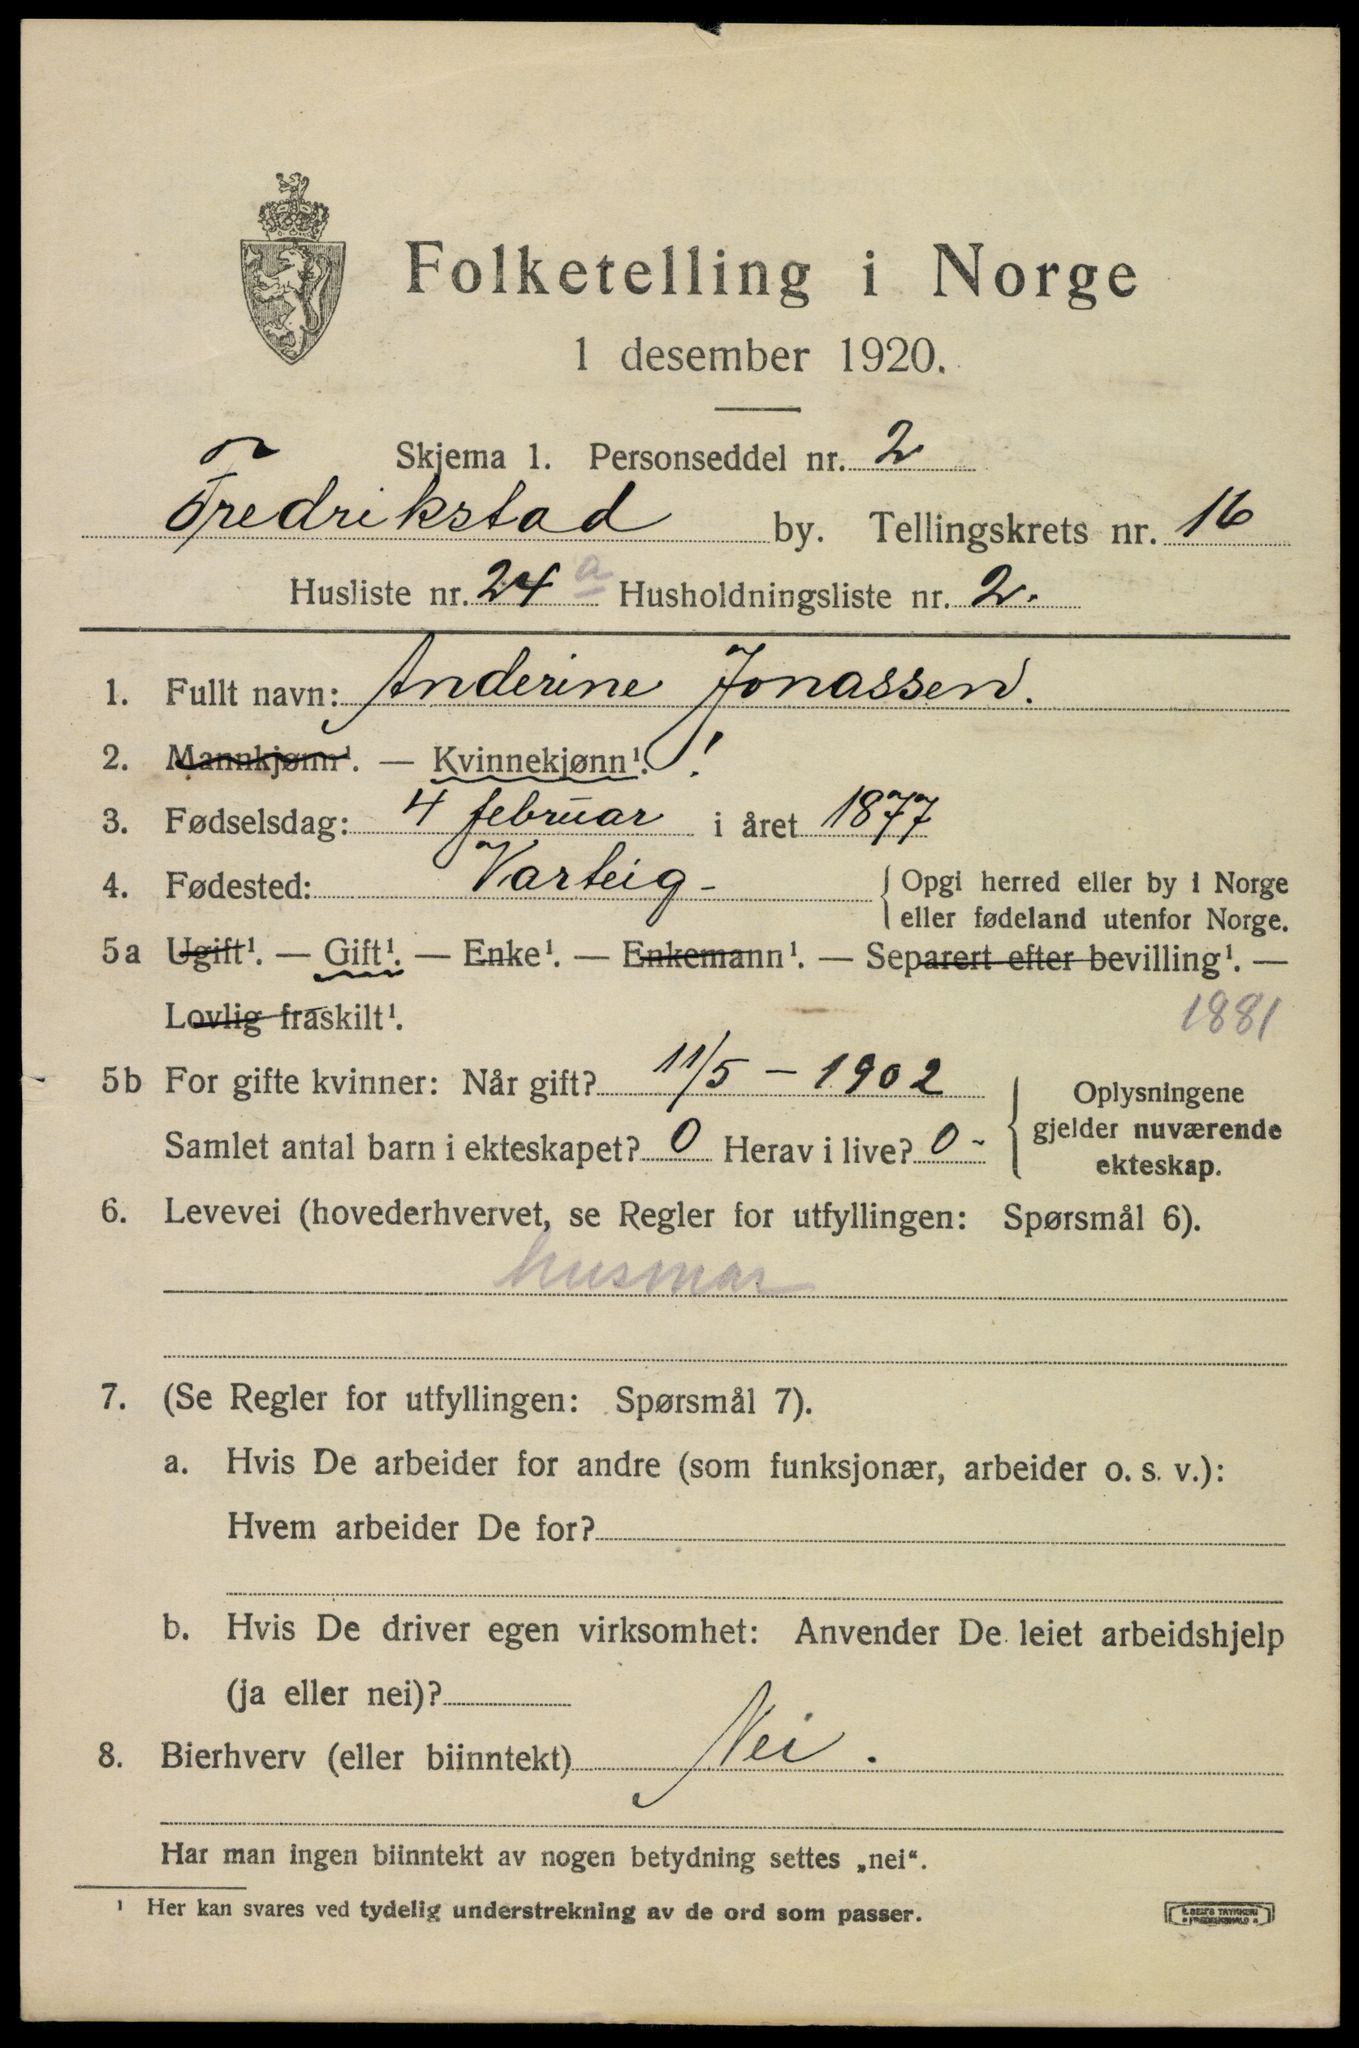 Folketelling i Norge
1 desember 1920.
Skjema 1. Personseddel nr. 2
Fredrikstad by. Tellingskrets nr. 16
Husliste nr. 24 a Husholdningsliste nr. 2.
1. Fullt navn: Anderine Jonassen.
2. Mannkjønn¹. — Kvinnekjønn¹. !
3. Fødselsdag: 4 februar i året 1877
4. Fødested: Varteig - { Opgi herred eller by i Norge
eller fødeland utenfor Norge.
5a Ugift¹. — Gift¹. — Enke¹. — Enkemann¹. — Separert efter bevilling¹. —
Lovlig fraskilt¹. 1881
5b For gifte kvinner: Når gift? 11/5 - 1902
Samlet antal barn i ekteskapet? 0 Herav i live? 0 -
{ Oplysningene
gjelder nuværende
ekteskap.
6. Levevei (hovederhvervet, se Regler for utfyllingen: Spørsmål 6).
husmor
7. (Se Regler for utfyllingen: Spørsmål 7).
a. Hvis De arbeider for andre (som funksjonær, arbeider o. s. v.):
Hvem arbeider De for?
b. Hvis De driver egen virksomhet: Anvender De leiet arbeidshjelp
(ja eller nei)?
8. Bierhverv (eller biinntekt) Nei.
Har man ingen biinntekt av nogen betydning settes „nei“.
¹ Her kan svares ved tydelig understrekning av de ord som passer.